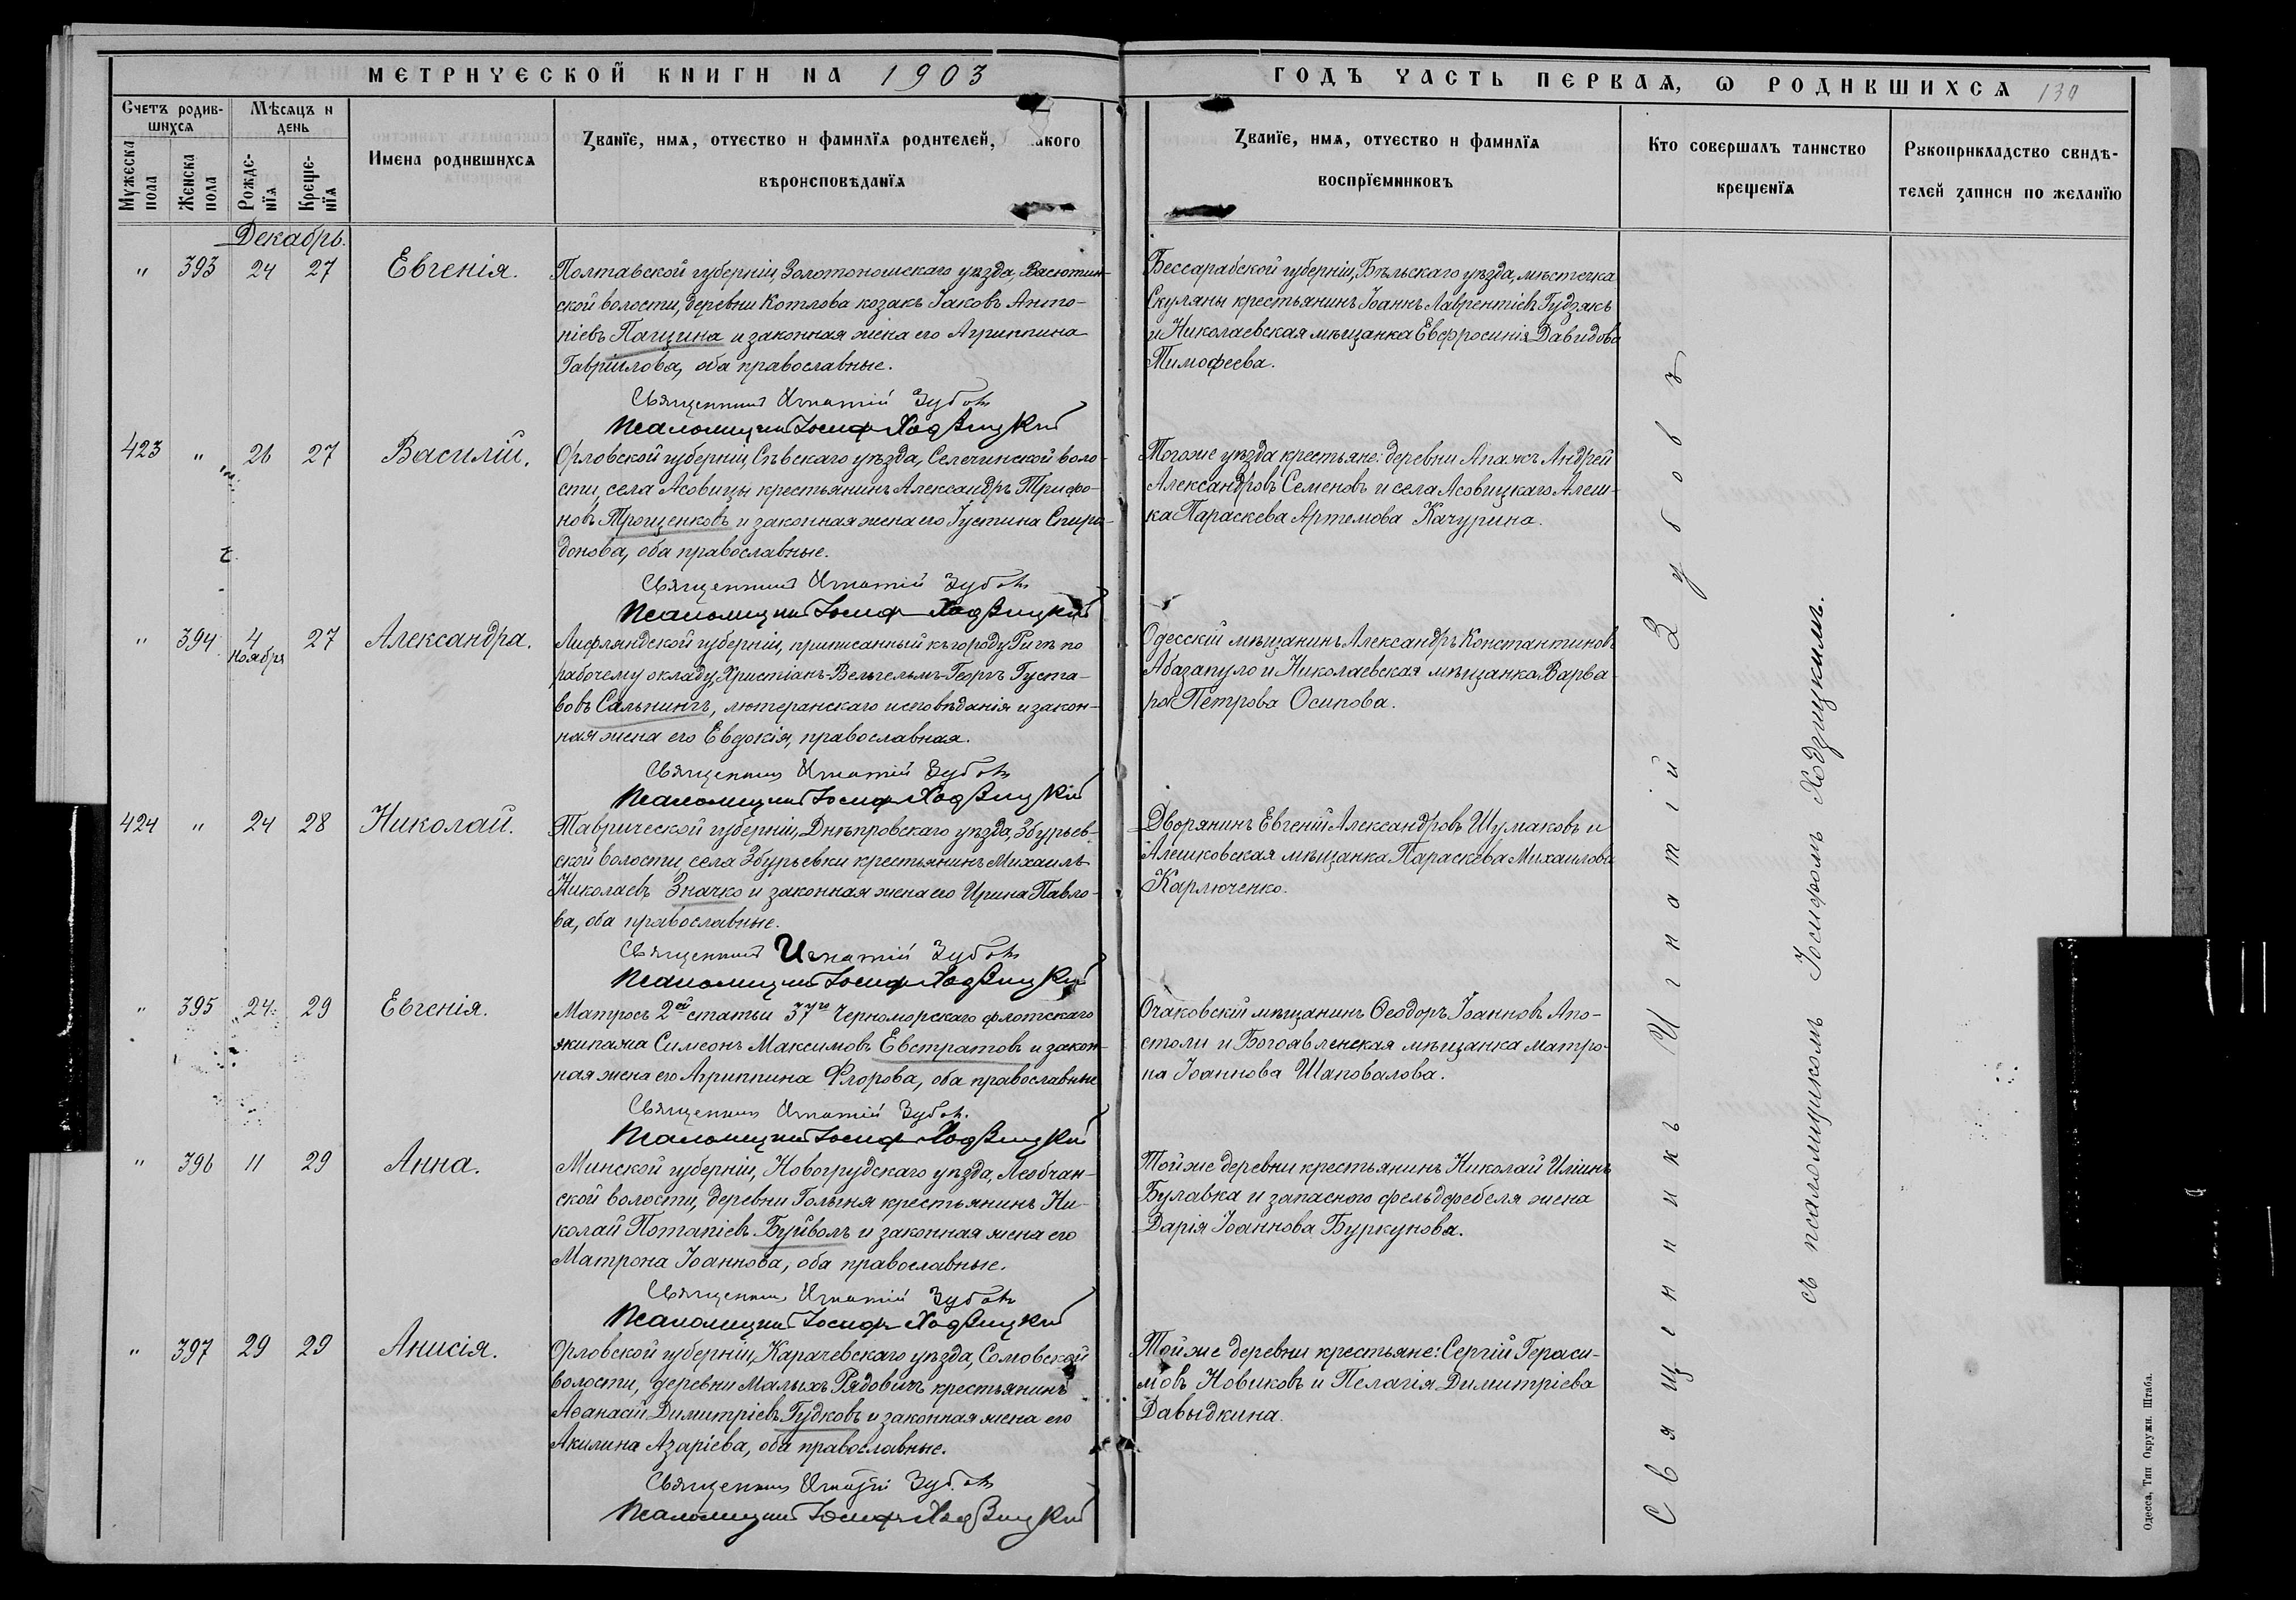 МЕТРИЧЕСКОЙ КНИГИ НА 1903
ГОДЪ ЧАСТЬ ПЕРВАЯ, Ѡ РОДИВШИХСЯ
Счетъ родив-
шихся
Мѣсяцъ и
день
Мужеска
пола
Женска
пола
Рожде-
нїя
Креще-
нїя
Имена родившихся
Званїе, имя, отчество и фамилїя родителей, акого
вѣроисповѣданїя
Званїе, имя, отчество и фамилїя
воспрїемниковъ
Кто совершалъ таинство
крещенїя
Рукоприкладство свидѣ-
телей записи по желанїю
Декабрь.
" 393 24 27 Евгенія.
Полтавской губерніи, Золотоношскаго уѣзда, Васютин-
ской волости, деревни Котлова козакъ Іаковъ Анто-
ніевъ Пащина и законная жена его Агриппина
Гавріилова, оба православные.
Священникъ Игнатій Зубовъ
Псаломщикъ Іосифъ Ходзицкій
Бессарабской губерніи, Бѣльскаго уѣзда, мѣстечка
Скуляны крестьянинъ Іоаннъ Лаврентіевъ Гудзякъ
и Николаевская мѣщанка Евфросинія Давидова
Тимофеева.
423 " 26 27 Василій.
Орловской губерніи Сѣвскаго уѣзда, Селечинской воло-
сти, села Асовицы крестьянинъ Александръ Трифо-
новъ Трощенковъ и законная жена его Іустина Спири-
донова, оба православные.
Священникъ Игнатій Зубовъ
Псаломщикъ Іосифъ Ходзицкій
Тогоже уѣзда крестьяне: деревни Апажъ Андрей
Александровъ Семеновъ и села Асовицкаго Алеш-
ка Параскева Артемова Качурина.
" 394 4 ноября 27 Александра.
Лифляндской губерніи, приписанный къ городу Ригѣ по
рабочему окладу, Христіанъ-Вельгельмъ-Георгъ Густа-
вовъ Сальнингъ, лютеранскаго исповѣданія и закон-
ная жена его Евдокія, православная.
Священникъ Игнатій Зубовъ
Псаломщикъ Іосифъ Ходзицкій
Одесскій мѣщанинъ Александръ Константиновъ
Абазапуло и Николаевская мѣщанка Варва-
ра Петрова Осипова.
424 " 24 28 Николай.
Таврической губерніи, Днѣпровскаго уѣзда, Збурьев-
ской волости, села Збурьевки крестьянинъ Михаилъ
Николаевъ Значко и законная жена его Ирина Павло-
ва, оба православные.
Священникъ Игнатій Зубовъ
Псаломщикъ Іосифъ Ходзицкій
Дворянинъ Евгеній Александровъ Шумаковъ и
Алешковская мѣщанка Параскева Михаилова
Карлюченко.
" 395 24 29 Евгенія.
Матросъ 2ой статьи 37го Черноморскаго флотскаго
экипажа Симеонъ Максимовъ Евстратовъ и закон-
ная жена его Агриппина Флорова, оба православные
Священникъ Игнатій Зубовъ.
Псаломщикъ Іосифъ Ходзицкій
Очаковскій мѣщанинъ Ѳеодоръ Іоанновъ Апо-
столи и Богоявленская мѣщанка Матро-
на Іоаннова Шаповалова.
" 396 11 29 Анна.
Минской губерніи, Новогрудскаго уѣзда, Любчан-
ской волости, деревни Голыня крестьянинъ Ни-
колай Потапіевъ Буйволъ и законная жена его
Матрона Іоаннова, оба православные.
Священникъ Игнатій Зубовъ
Псаломщикъ Іосифъ Ходзицкій
Тойже деревни крестьянинъ Николай Иліинъ
Булавка и запаснаго фельдфебеля жена
Дарія Іоаннова Буркунова.
" 397 29 29 Анисія.
Орловской губерніи, Карачевскаго уѣзда, Сомовской
волости, деревни Малыхъ Рядовичъ крестьянинъ
Аѳанасій Димитріевъ Гудковъ и законная жена его
Акилина Азаріева, оба православные.
Священникъ Игнатій Зубовъ
Псаломщикъ Іосифъ Ходзицкій
Тойже деревни крестьяне: Сергій Гераси-
мовъ Новиковъ и Пелагія Димитріева
Давыдкина.
Священникъ Игнатій Зубовъ
съ псаломщикомъ Іосифомъ Ходзицкимъ.
Одесса, Тип Окружн. Штаба.